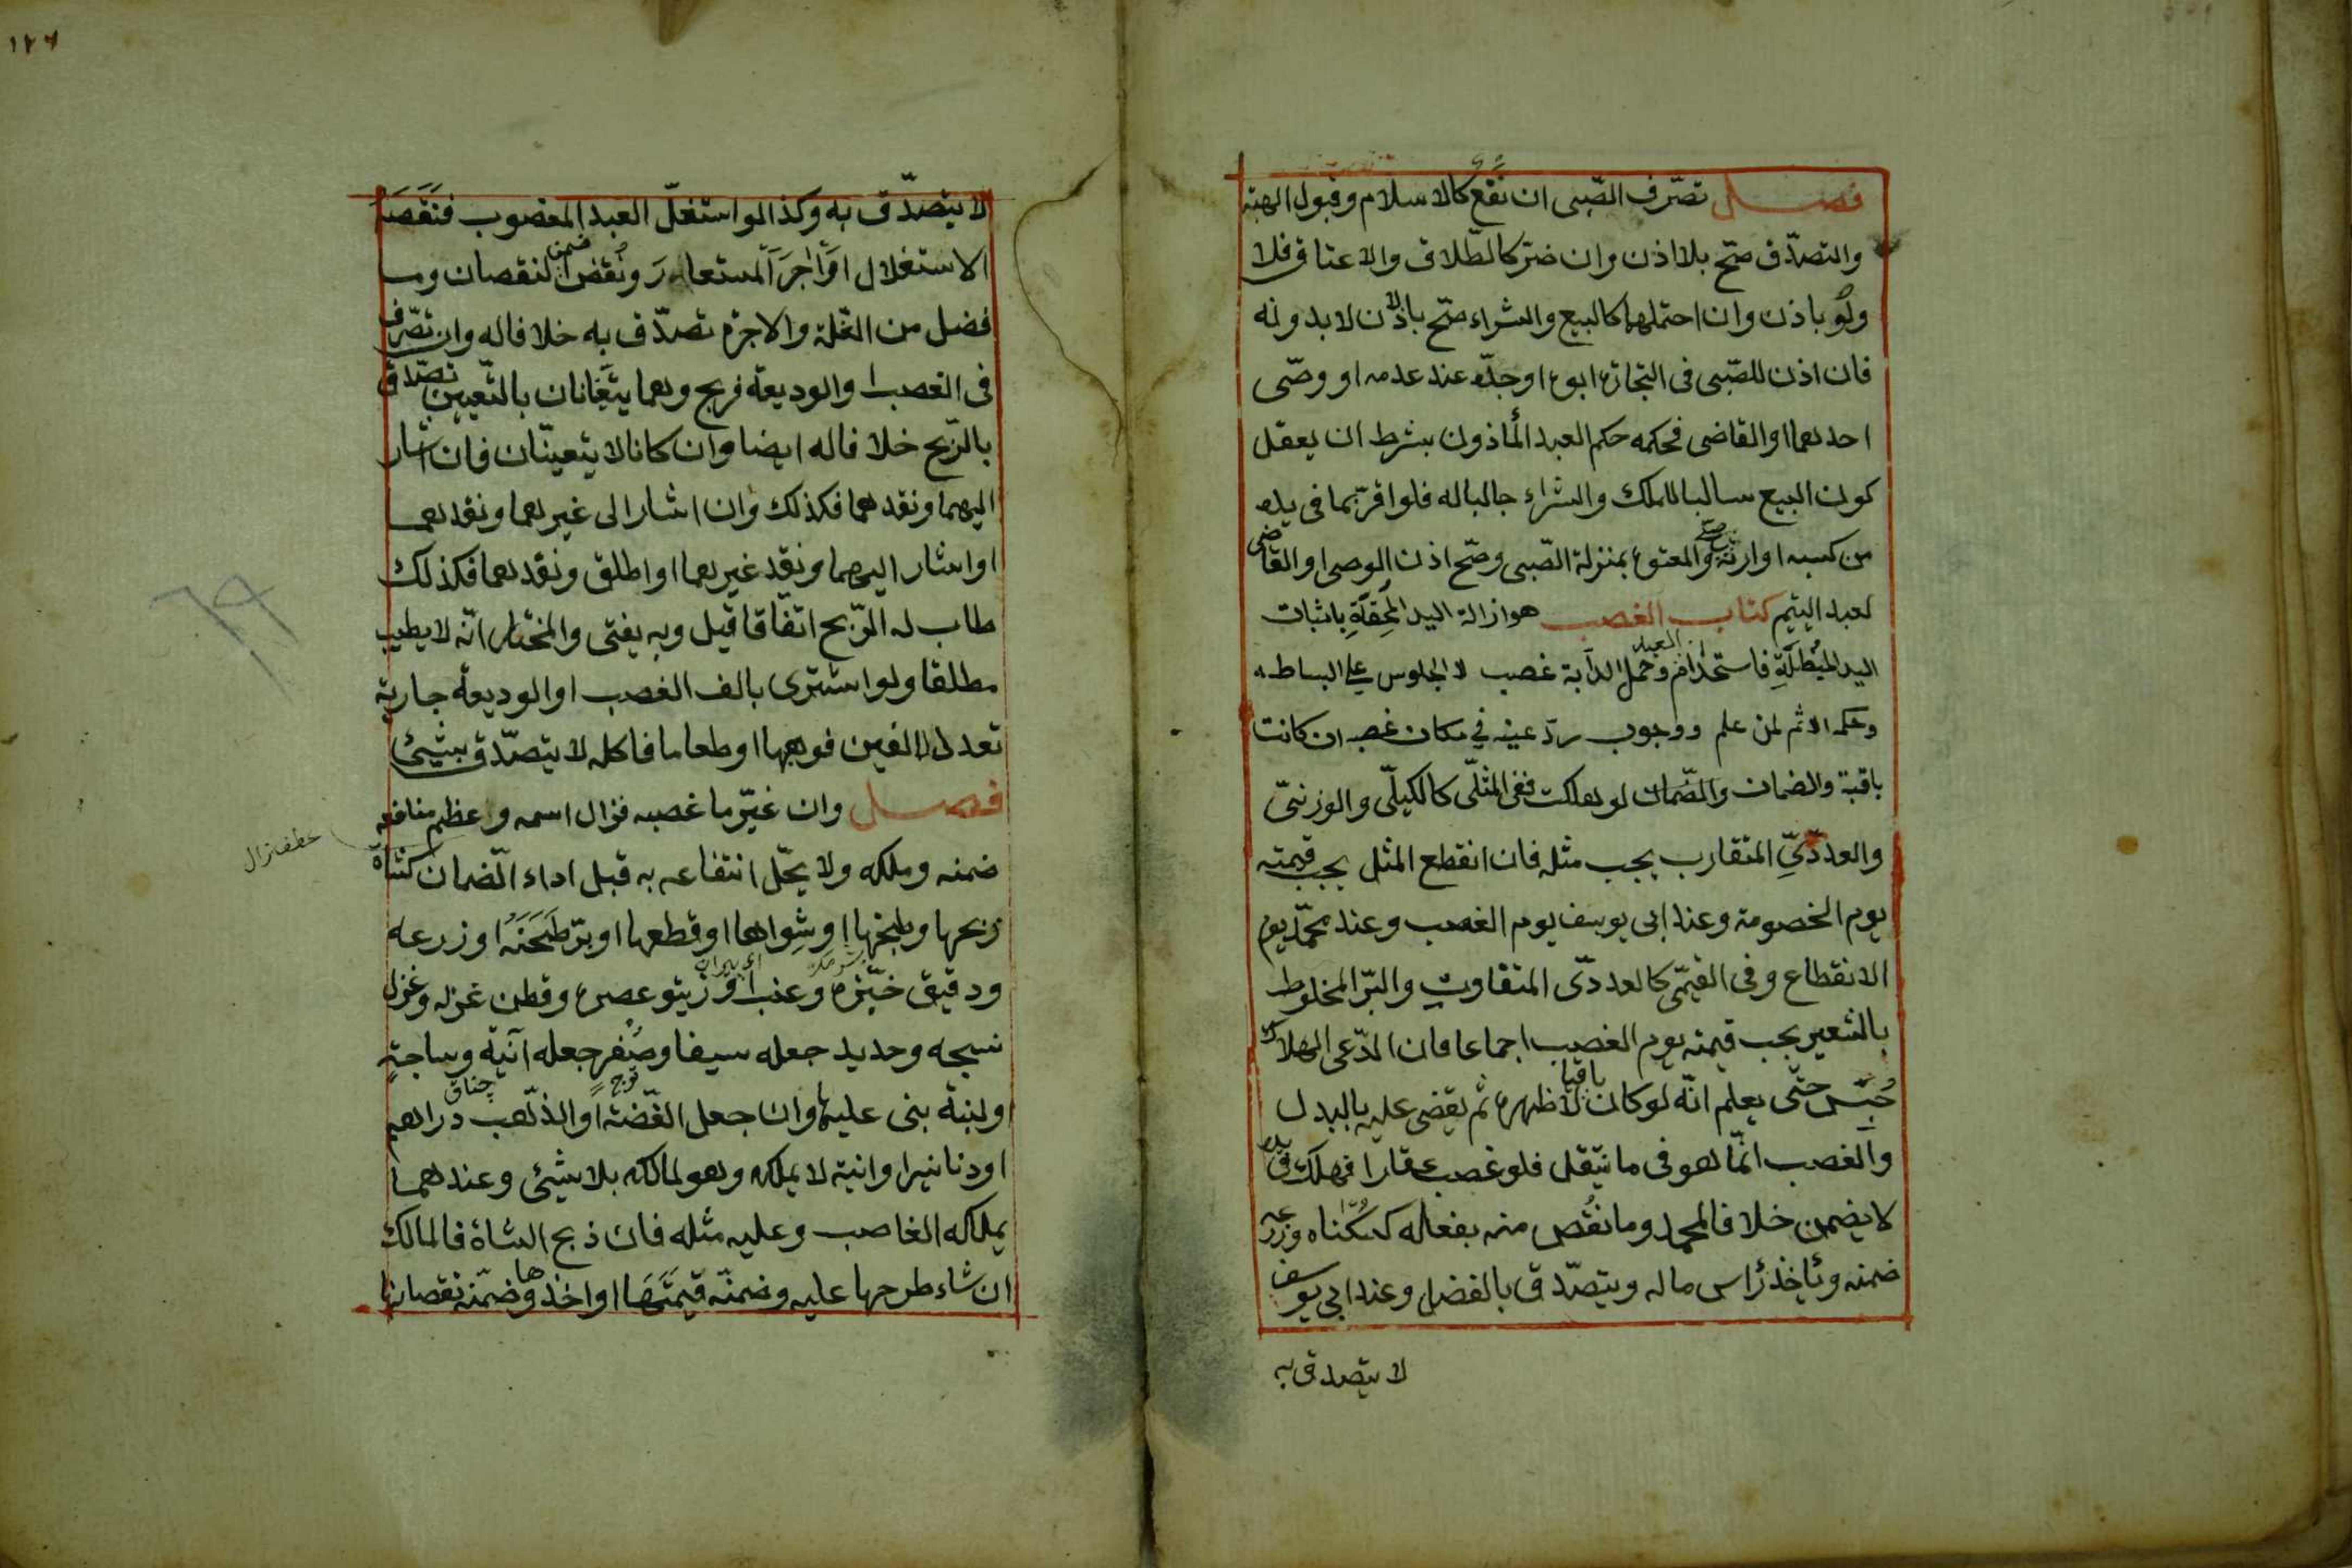 فصل تصرّف الصّبى ان نَفَع كالاسلام وقبول الهبة
والتصدّق صحّ بلا اذن وان ضرّ كالطّلاق والاعتاق فلا
ولو باذن وان احتملهما كالبيع والشراء صحّ بالاذن لا بدونه
فان اذن للصّبى فى التجارة ابوه او جدّه عند عدمه او وصّى
احدهما او القاضى فحكمه حكم العبد المأذون بشرط ان يعقل
كون البيع سالبا للملك والشراء جالبا له فلو اقرّ بما فى يده
من كسبه او ارثه صحّ والمعتوه بمنزلة الصّبى وصّح اذن الوصى او القاضى
لعبد اليتيم كتاب الغصب هو ازالة اليد المُحِقّةِ باثبات
اليد المُبْطِلَةِ فاستخدام العبد وحمل الدآبة غصب لا الجلوس على البساط
وحكمه الاثم لمن علم ووجوب ردّ عينه في مكان غصبه ان كانت
باقية والضمان والضّمان لو هلكت ففى المثلّى كالكيلّى والوزنىّ
والعددّىّ المتقارب يجب مثله فان انقطع المثل يجب قيمته
يوم الخصومة وعند ابى يوسف يوم الغصب وعند محمّد يوم
الانقطاع وفى القيمّى كالعددّى المتفاوت والبرّ المخلوط
بالشعير يجب قيمته يوم الغصب اجماعا فان ادّعى الهلاك
حُبّس حتّى يعلم انّه لو كان باقيا لاظهره ثم يقضى عليه بالبدل
والغصب انّما هو فى ما ينقل فلو غصب عقارا فهلك فى يده
لا يضمن خلافا لمحمد وما نقُص منه بفعله كسكناه وزرعه
ضمنه ويأخذ رأس ماله ويتصدّق بالفضل وعند ابى يوسف
لا يتصدق به
١٢٦
لا يتصدّق به وكذا لو استغلّ العبد المغصوب فنَقَصَه
الاستغلال او آجَرَ المستعار ونُقِص ضمن النقصان وما
فضل من الغلة والاجرة تصدّق به خلافا له وان تصّرف
فى الغصب او الوديعة فربح وهما يتعيّنان بالتّعيين تصدّق
بالرّبح خلافا له ايضا وان كانا لا يتعيّنان فان اشار
اليهما ونقدهما فكذلك وان اشار الى غيرهما ونقدهما
او اشار اليهما ونقد غيرهما او اطلق ونقدهما فكذلك
طاب له الرّبح اتفّاقا قيل وبه يفتى والمختار انّه لا يطيب
مطلقا ولو اشترى بالف الغصب او الوديعة جارية
تعدل الفين فوهبها او طعاما فاكله لا يتصدّق بشئ
فصل وان غيّر ما غصبه فزال اسمه وعظم منافعه
عطف زال
ضمنه وملكه ولا يحّل انتفاعه به قبل اداء الّضمان كشاة
ذبحها وطبخها او شواها او قطعها او برّ طَحَنَهُ او زرعه
ودقيق خبّزه وعنب او زيتو عصره وقطن غزله وغزل
نسجه وحديد جعله سيفا وصُفر جعله آنية وساجةٍ
او لبنة بنى عليها وان جعل الفّضة او الذّهب دراهم
او دنانير او انية لا يملكه وهو لمالكه بلا شيئ وعندهما
يملكه الغاصب وعليه مثله فان ذبح الشاة فالمالك
ان شاء طرحها عليه وضمنّه قيمتَهَا او اخذها وضمّنه نقصانها